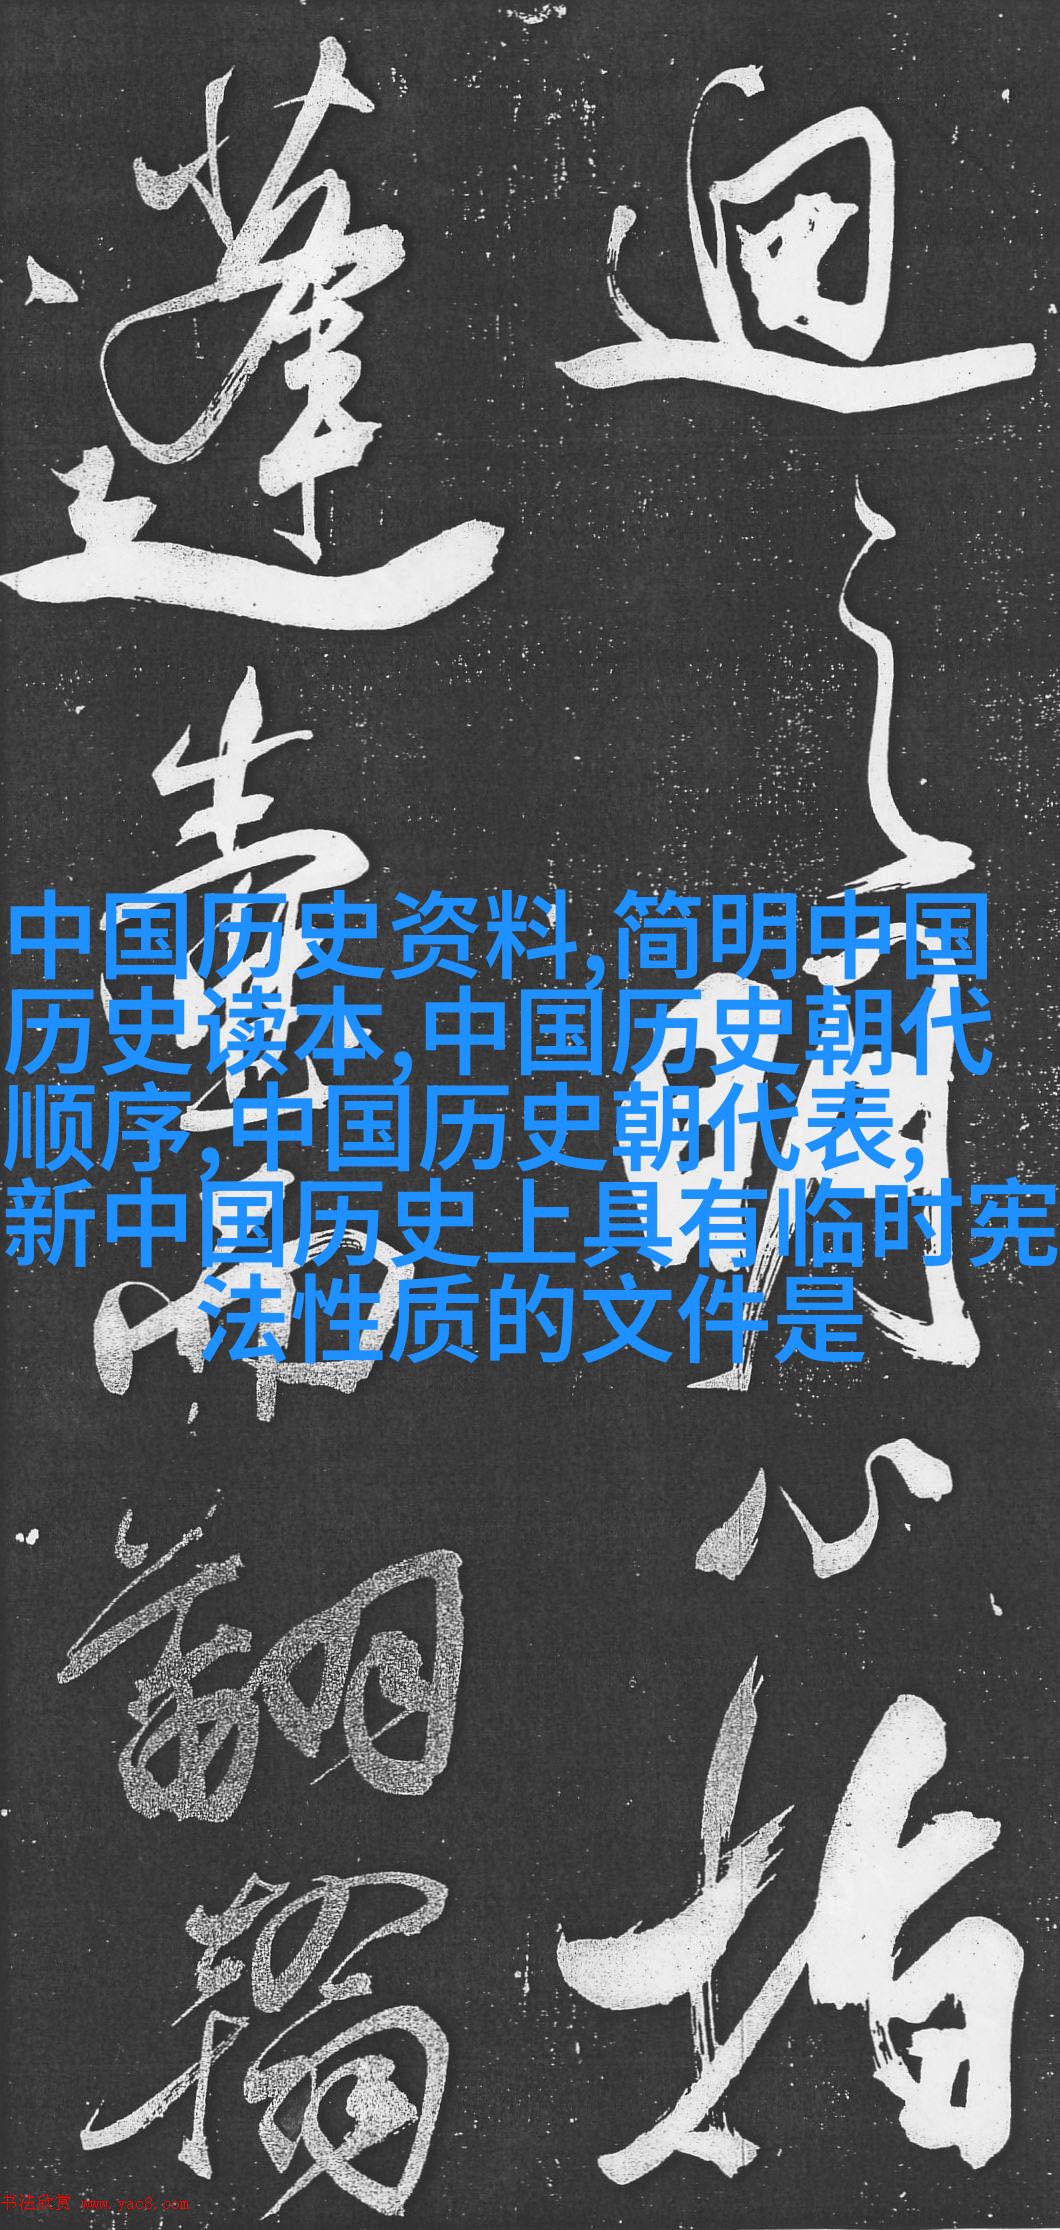 中国历史资料,简明中国
历史读本,中国历史朝代
顺序,中国历史朝代表,
新中国历史上具有临时宪
法性质的文件是
迴之明心指
蓬壶而翻翰
书法欣赏 www.yac8.com